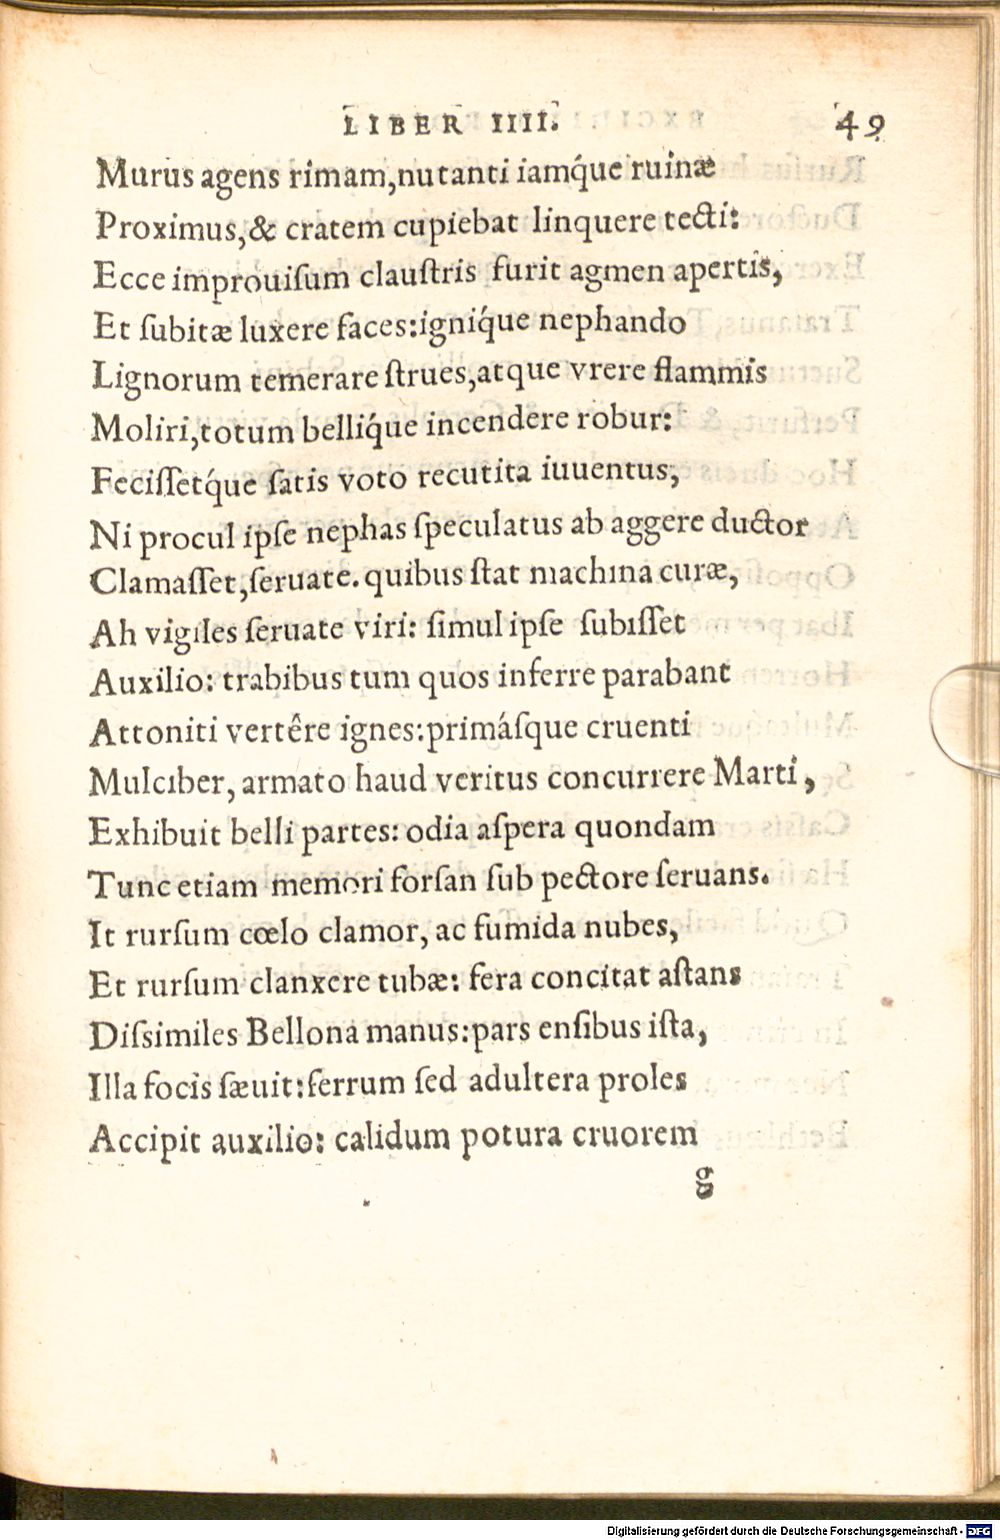 LIBER IIII. 49
Murus agens rimam,nutanti iamq́ue ruinæ
Proximus,& cratem cupiebat linquere tecti:
Ecce improuiſum clauſtris furit agmen apertis,
Et ſubitæ luxere faces:igniq́ue nephando
Lignorum temerare ſtrues,atque vrere flammis
Moliri,totum belliq́ue incendere robur:
Feciſſetq́ue ſatis voto recutita iuuentus,
Ni procul ipſe nephas ſpeculatus ab aggere ductor
Clamaſſet,ſeruate. quibus ſtat machina curæ,
Ah vigiles ſeruate viri: ſimul ipſe ſubiſſet
Auxilio: trabibus tum quos inferre parabant
Attoniti vertêre ignes:primáſque cruenti
Mulciber, armato haud veritus concurrere Marti,
Exhibuit belli partes: odia aſpera quondam
Tunc etiam memori forſan ſub pectore ſeruans.
It rurſum cœlo clamor, ac fumida nubes,
Et rurſum clanxere tubæ: fera concitat aſtans
Diſsimiles Bellona manus:pars enſibus iſta,
Illa focis ſæuit:ferrum ſed adultera proles
Accipit auxilio: calidum potura cruorem
g
Digitalisierung gefördert durch die Deutsche Forschungsgemeinschaft - DFG